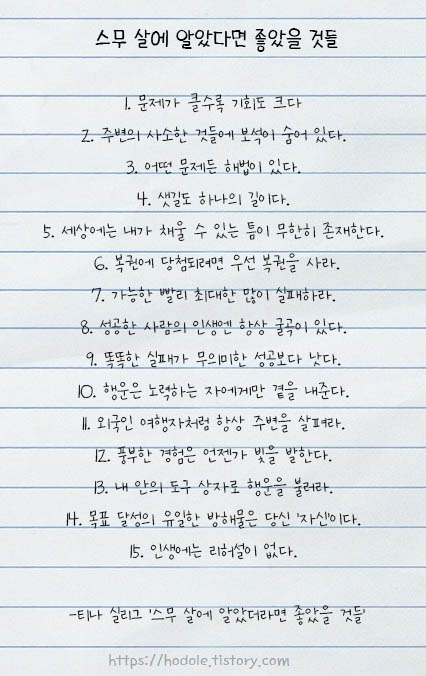 스무 살에 알았다면 좋았을 것들
1. 문제가 클수록 기회도 크다
2. 주변의 사소한 것들에 보석이 숨어 있다.
3. 어떤 문제든 해법이 있다.
4. 샛길도 하나의 길이다.
5. 세상에는 내가 채울 수 있는 틈이 무한히 존재한다.
6. 복권에 당첨되려면 우선 복권을 사라.
7. 가능한 빨리 최대한 많이 실패하라.
8. 성공한 사람의 인생엔 항상 굴곡이 있다.
9. 똑똑한 실패가 무의미한 성공보다 낫다.
10. 행운은 노력하는 자에게만 곁을 내준다.
11. 외국인 여행자처럼 항상 주변을 살펴라.
12. 풍부한 경험은 언젠가 빛을 발한다.
13. 내 안의 도구 상자로 행운을 불러라.
14. 목표 달성의 유일한 방해물은 당신 '자신'이다.
15. 인생에는 리허설이 없다.
-티나 실리그 '스무 살에 알았더라면 좋았을 것들'
https://hodole.tistory.com